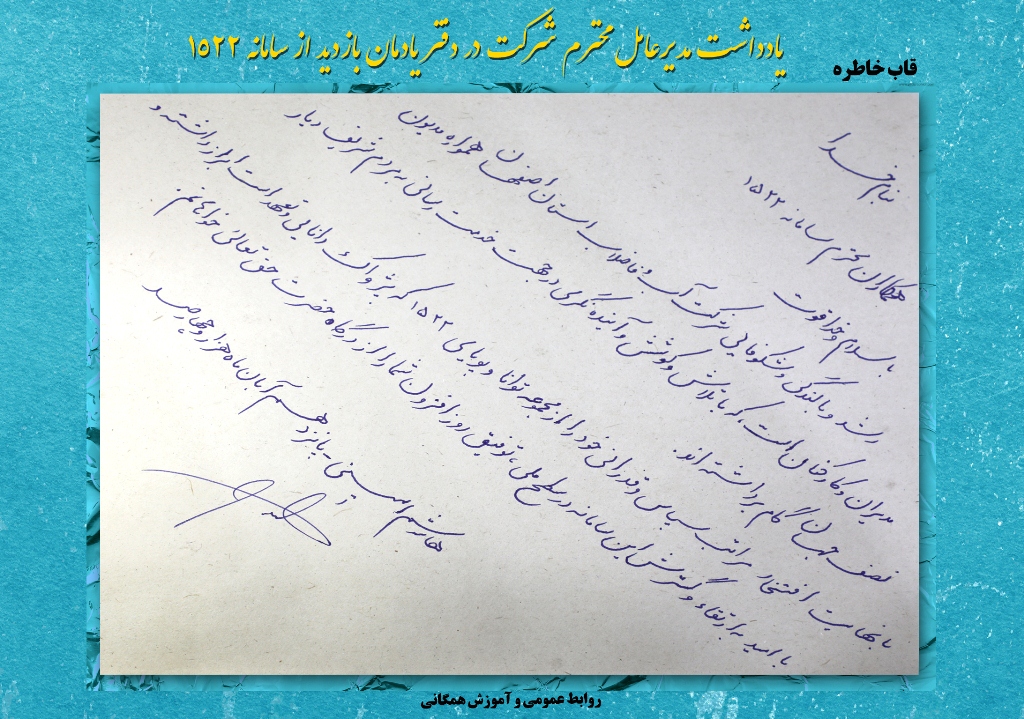 یادداشت مدیرعامل محترم شرکت در دفتر یادمان بازدید از سامانه ۱۵۲۲
قاب خاطره
بنام خدا
همکاران محترم سامانه ۱۵۲۲
با سلام و خدا قوت
رشد و بالندگی و شکوفایی شرکت آب و فاضلاب استان اصفهان همواره مدیون
مدیران و کارکنان است که با تلاش و کوشش و آینده نگری در جهت خدمت رسانی به مردم شریف دیار
نصف جهان گام برداشته اند.
با نهایت افتخار مراتب سپاس و قدردانی خود را از مجموعه توانا و پویای ۱۵۲۲ که پژواک دانایی و تعهد است ابراز داشته و
با امید به ارتقاء و گسترش این سامانه در سطح ملی، توفیق روز افزون شما را از درگاه حضرت حق تعالی خواهانم.
هاشم امینی - پانزدهم آبان ماه هزار و چهارصد
روابط عمومی و آموزش همگانی